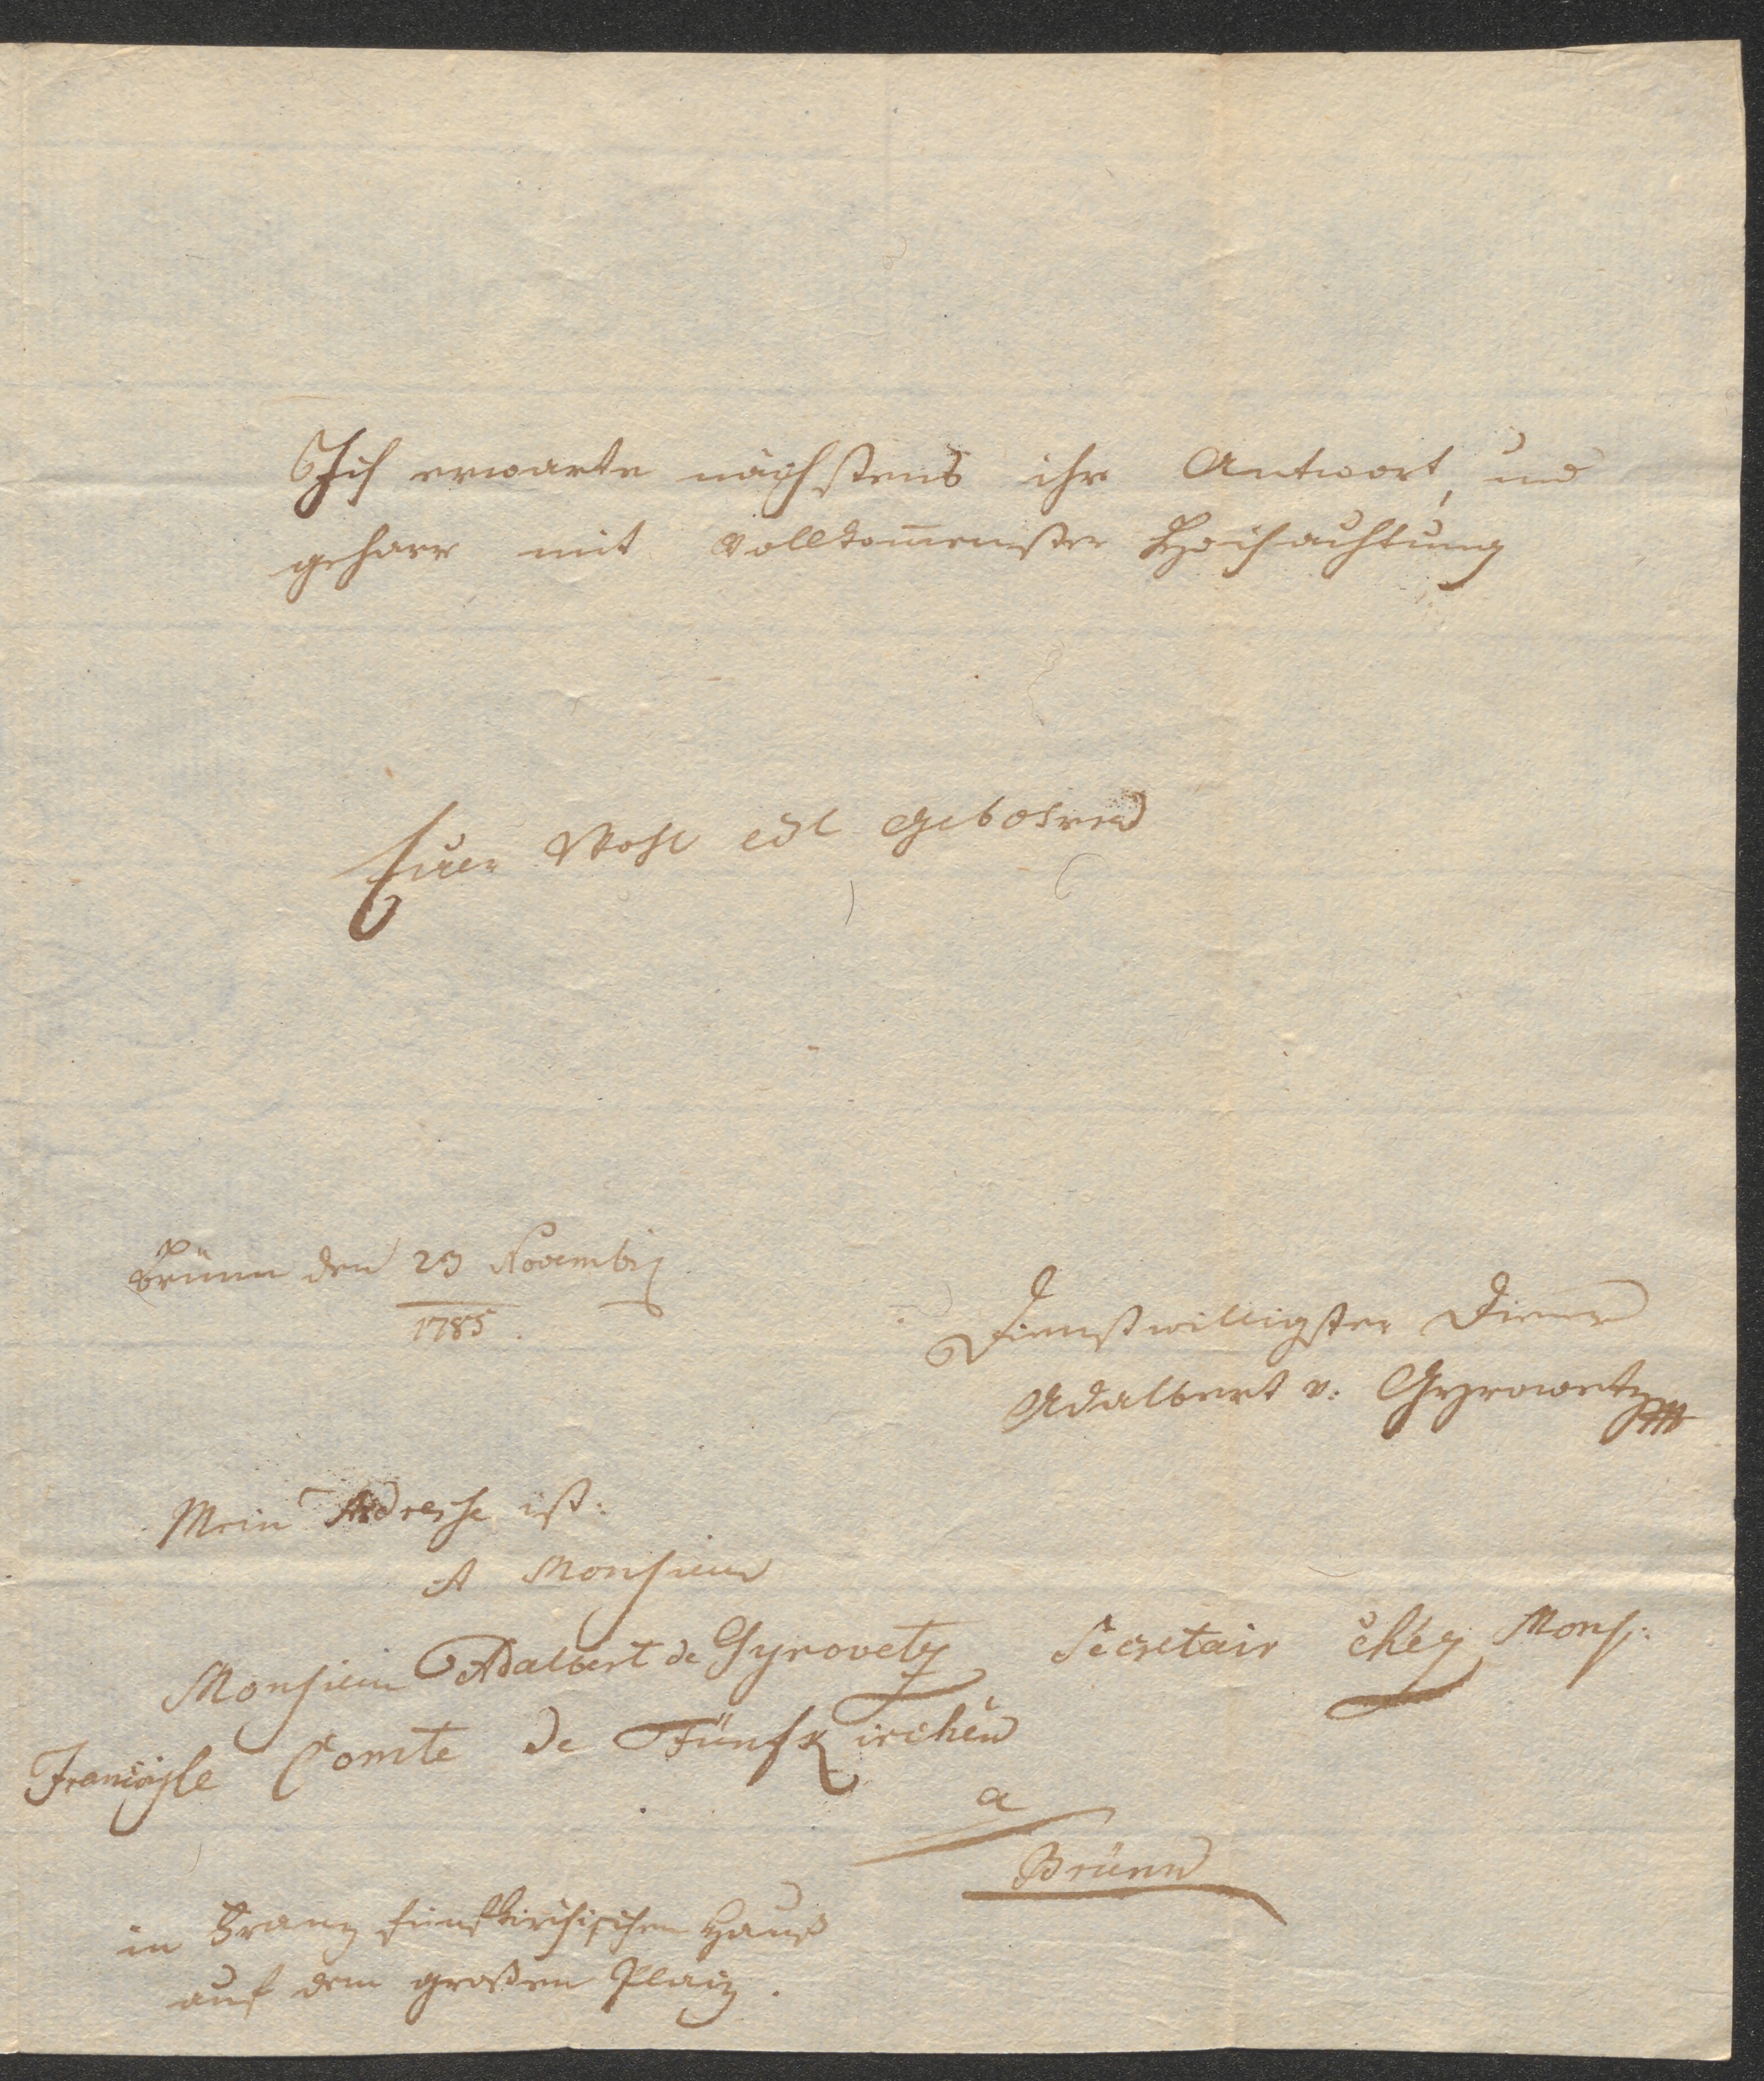 Ich erwarte nächstens ihr Antwort, und
geharr mit vollkom̅enster Hochachtung
Euer Wohl edl gebohren
Brünn den 23 Novembr
1785.
Dienstwilligster Diener
Adalbert v: Gyrowetz
Mein Adresse ist:
A Monsieur
Monsieur Adalbert de Gyrovetz Secretair chéz Mons:
François le Comte de Fünfkirchen
a
Brünn
in Franz fünfkirchischen Hauß
auf dem großen Platz.